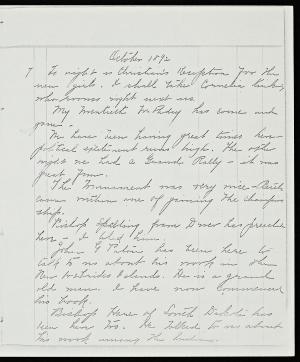 October 1892
7 To night is Christian's Reception for the
new girls. I shall take Cornelia
who rooms right next us.
My twentieth birthday has come and
gone.
We have been having great times here
political excitement runs high. The other
night we had a Grand Rally - it was
great fun.
The Tournament was very nice -
came within one of gaining the champion
ship.
Bishop Spalding from Denver has preached
here - I liked him.
John G Paton has been here to
talk to us about his work in the
New Hebrides Islands. He is a grand
old man. I have now commenced
his book.
Bishop Hare of South Dakota has
been here too. He talked to us about
his work among the Indians.